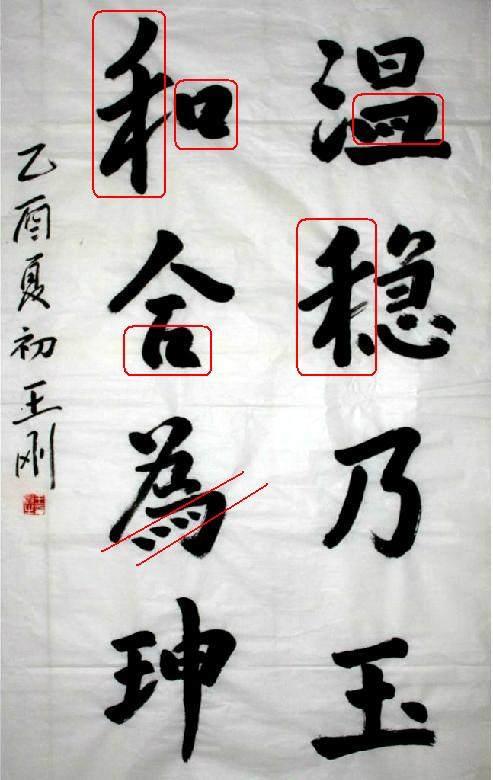 温稳乃玉
和合為珅
乙酉夏初王刚